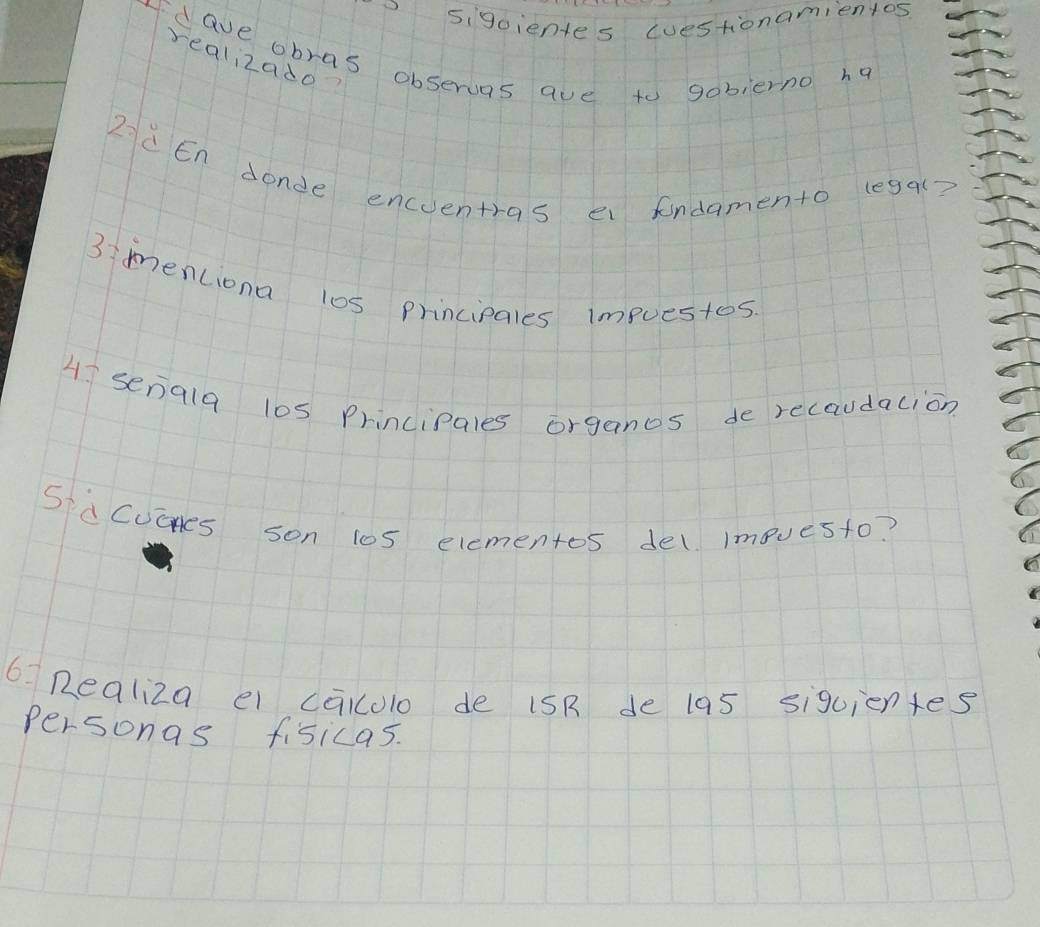 siguientes cuestionamientos
1-¿Que obras observas que tu gobierno ha
realizado?
2-¿En donde encuentras el fundamento legal?
3-menciona los principales impuestos.
4-señala los Principales órganos de recaudación
5-¿Cuales son los elementos del impuesto?
6-Realiza el cálculo de ISR de las siguientes
Personas físicas.